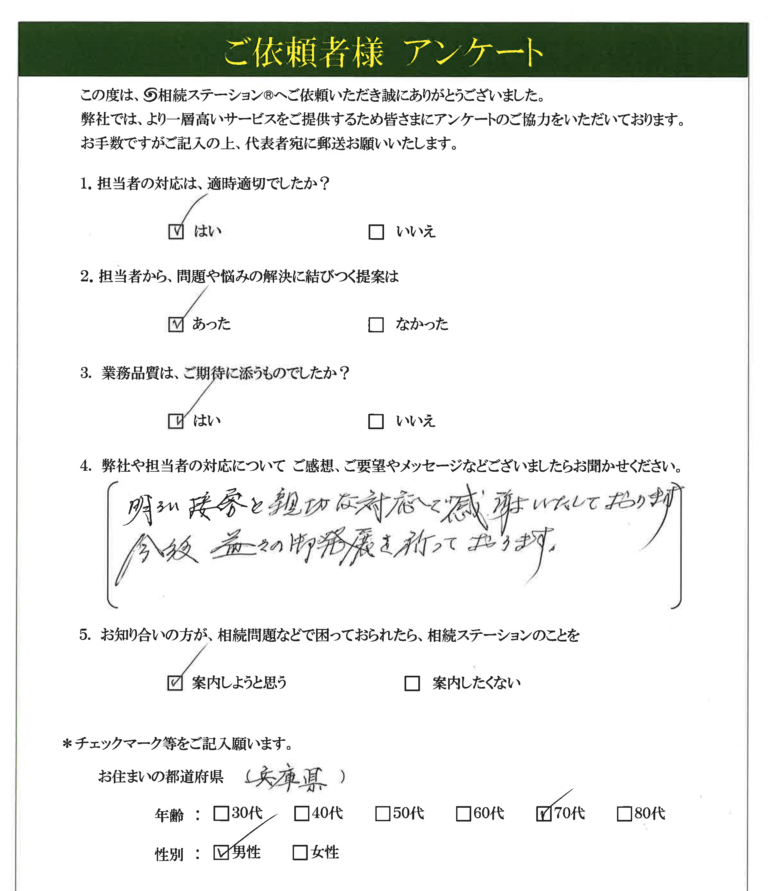 ご依頼者様 アンケート
この度は、相続ステーション®へご依頼いただき誠にありがとうございました。
弊社では、より一層高いサービスをご提供するため皆さまにアンケートのご協力をいただいております。
お手数ですがご記入の上、代表者宛に郵送お願いいたします。
1. 担当者の対応は、適時適切でしたか？
☑ はい □ いいえ
2. 担当者から、問題や悩みの解決に結びつく提案は
☑ あった □ なかった
3. 業務品質は、ご期待に添うものでしたか？
☑ はい □ いいえ
4. 弊社や担当者の対応について ご感想、ご要望やメッセージなどございましたらお聞かせください。
明るい接客と親切な対応で感謝いたしております
今後益々の御発展を祈っております。
5. お知り合いの方が、相続問題などで困っておられたら、相続ステーションのことを
☑ 案内しようと思う □ 案内したくない
＊チェックマーク等をご記入願います。
お住まいの都道府県 （兵庫県）
年齢 ： □30代 □40代 □50代 □60代 ☑70代 □80代
性別 ： ☑男性 □女性